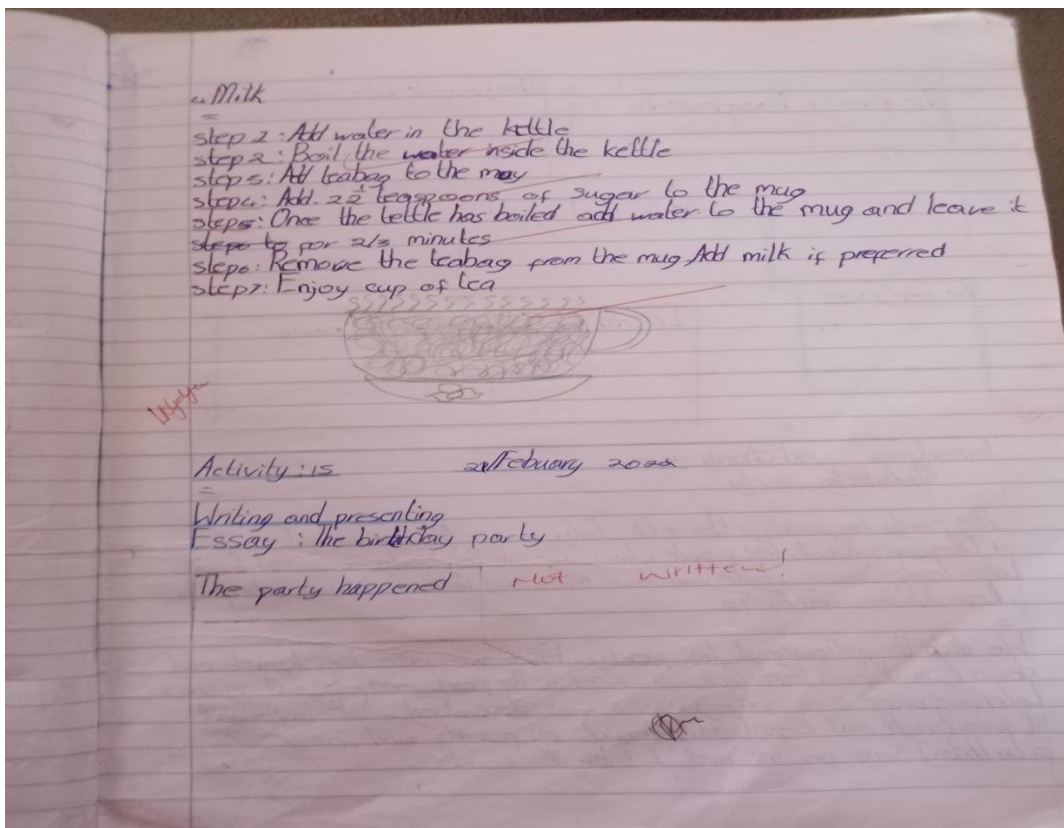 Milk
step 1: Add water in the kettle
step 2: Boil the water inside the kettle
step 3: Add teabag to the may
step 4: Add 2 1/2 teaspoons of sugar to the mug
step 5: Once the tettle has boiled add water to the mug and leave it
to for 2/3 minutes
step 6: Remove the teabag from the mug Add milk if preferred
step 7: Enjoy cup of tea
Activity: 15 Febuary
Writing and presenting
Essay : The birthday party
The party happened Not written!